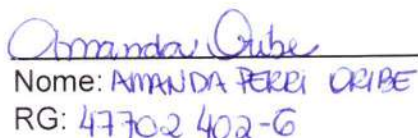 Amanda Oribe
Nome: AMANDA PERRI ORIBE
RG: 47702402-6